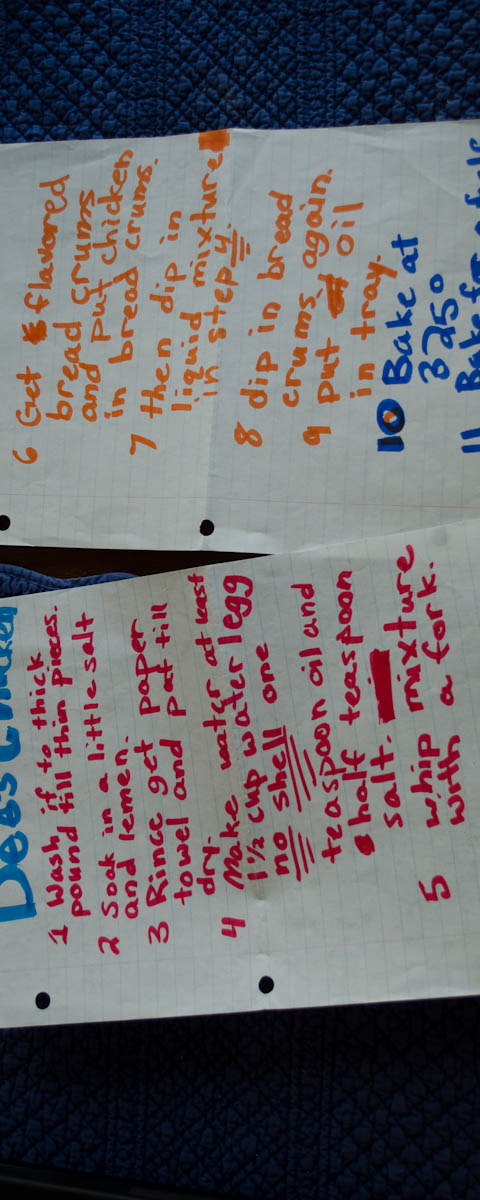 1 Wash if to thick
pound till thin pieces.
2 Soak in a little salt
and lemen.
3 Rince get paper
towel and pat till
dry.
4 Make water at least
1½ cup water 1 egg
no shell one
teaspoon oil and
half teaspoon
salt.
5 whip mixture
with a fork.
6 Get flavored
bread crums
and put chicken
in bread crums.
7 then dip in
liquid mixture
in step 4
8 dip in bread
crums again.
9 put oil
in tray.
10 Bake at
325°
11 Bake for a